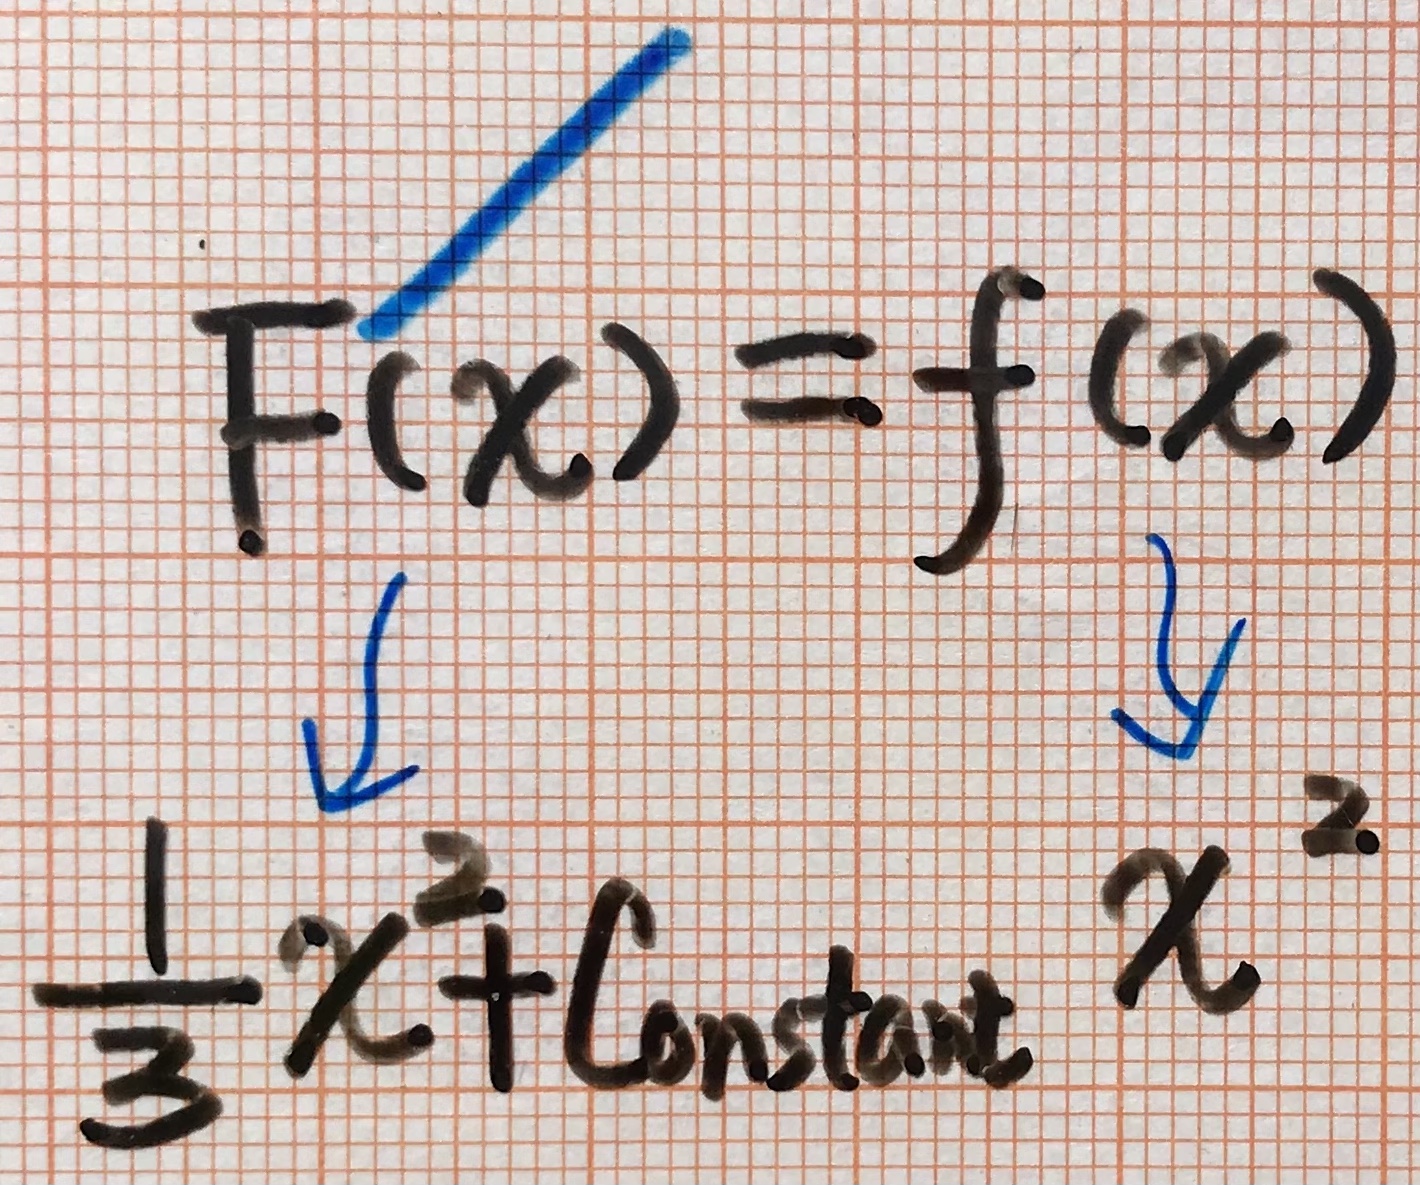 F'(x) = f(x)
1/3 x² + Constant x²